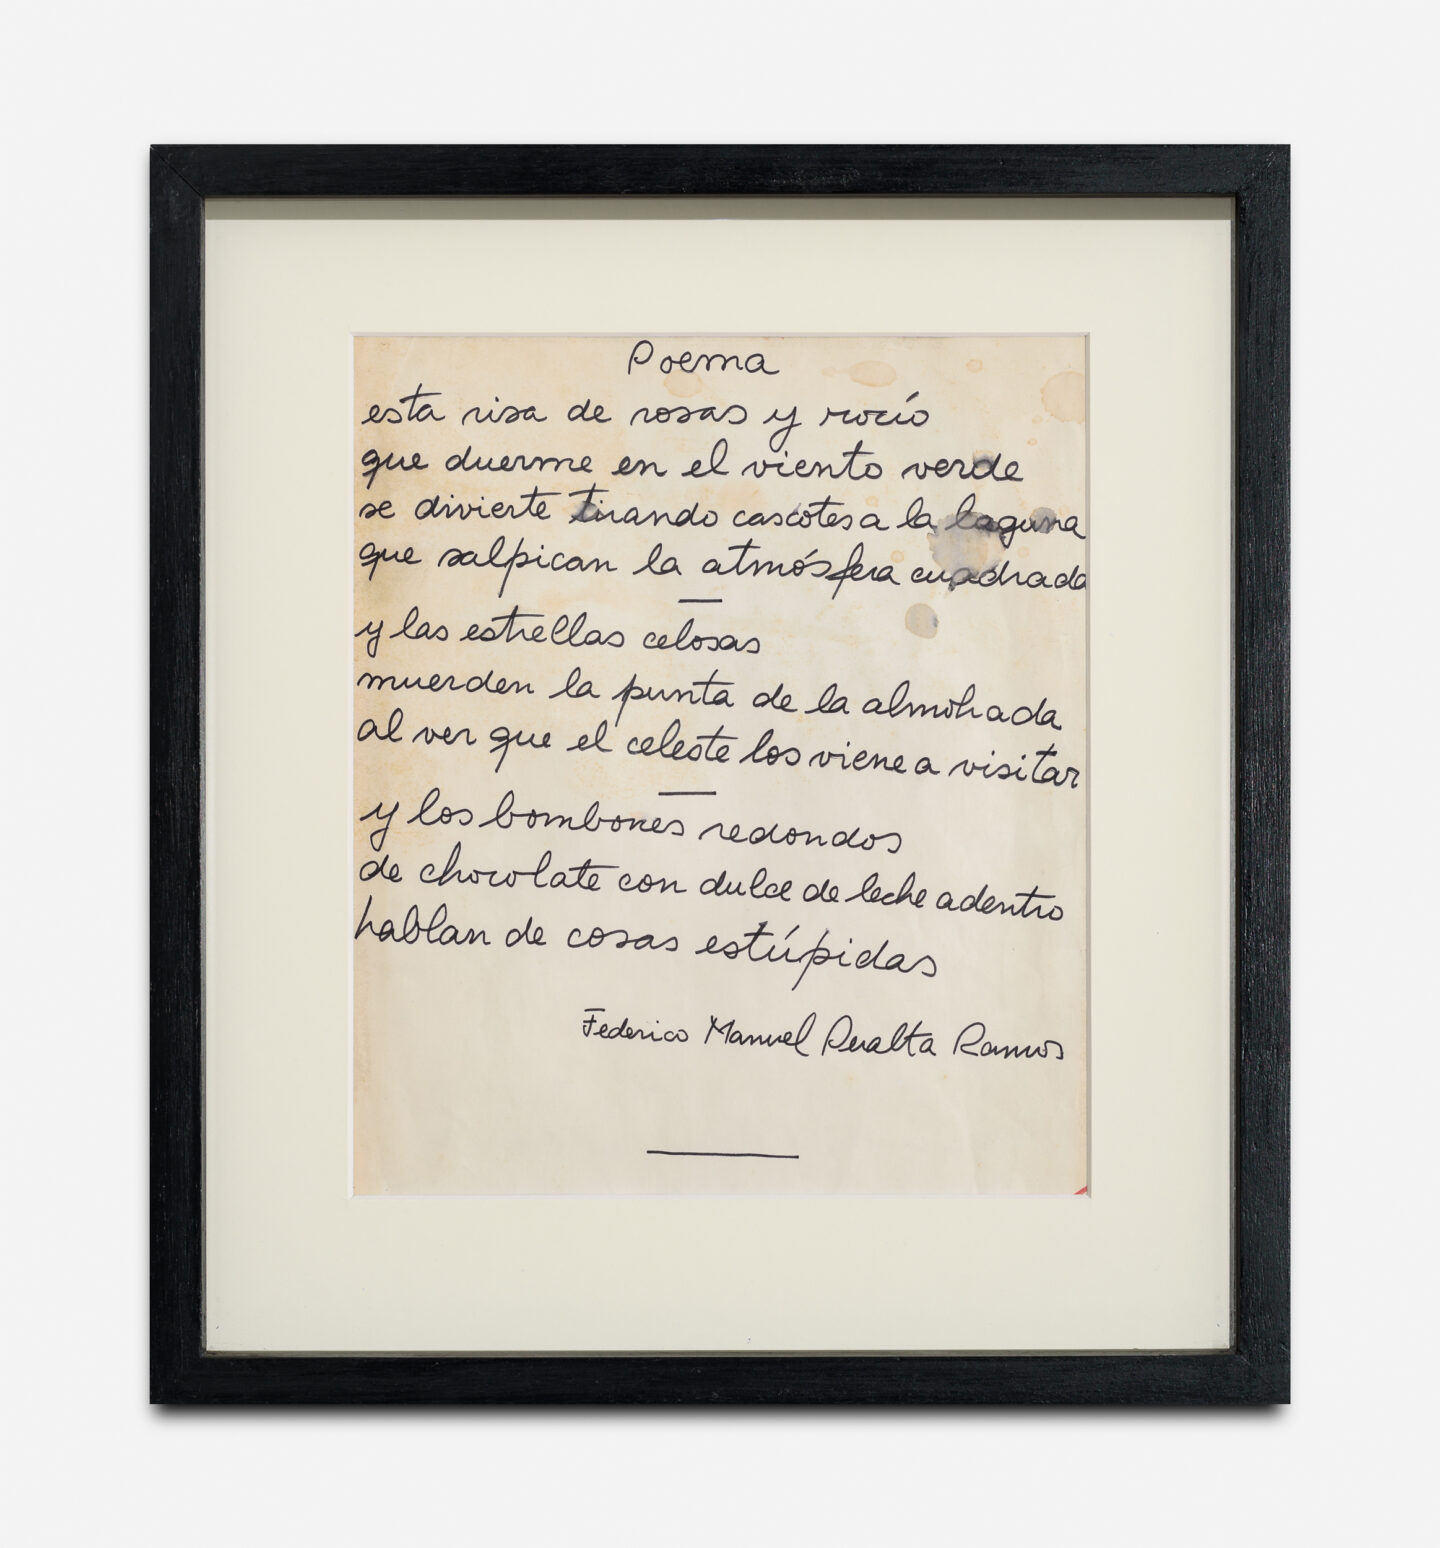 Poema
esta risa de rosas y rocío
que duerme en el viento verde
se divierte tirando cascotes a la laguna
que salpican la atmósfera cuadrada
y las estrellas celosas
muerden la punta de la almohada
al ver que el celeste los viene a visitar
y los bombones redondos
de chocolate con dulce de leche adentro
hablan de cosas estúpidas
Federico Manuel Peralta Ramos